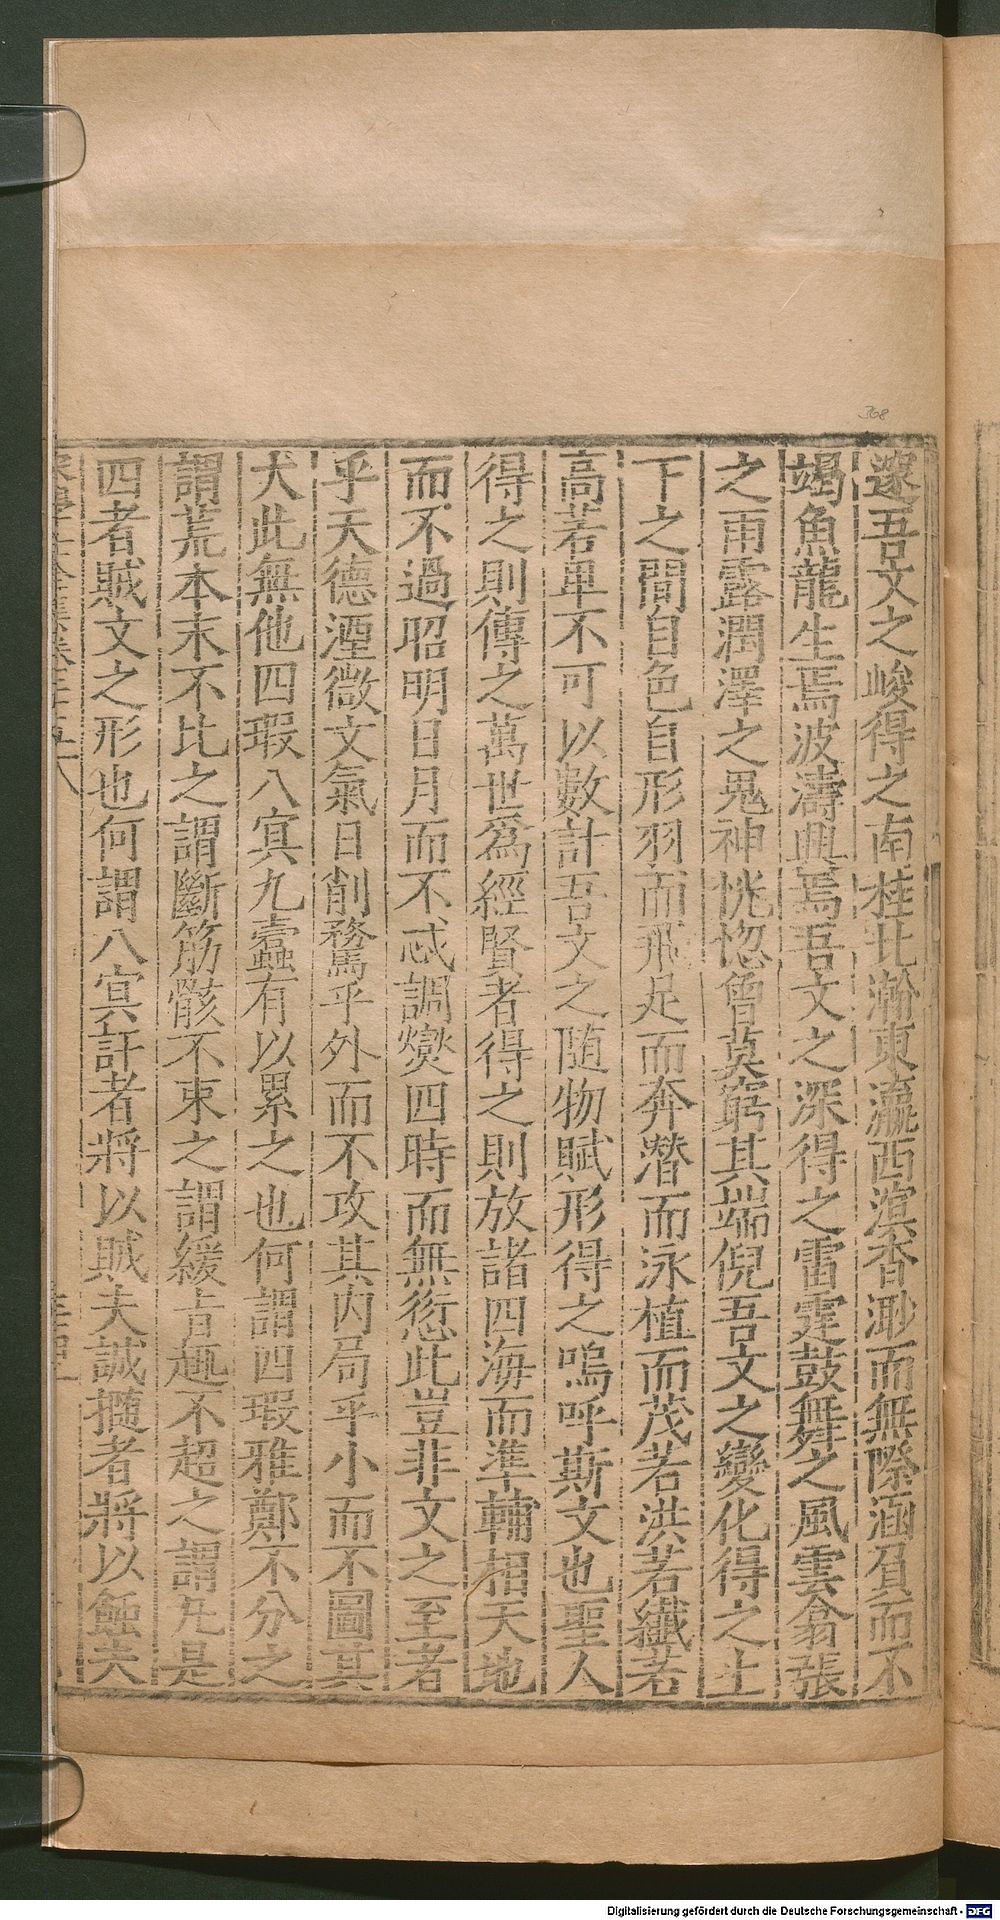 邃吾文之峻得之南桂北瀚東瀛西溟杳渺而無際涵負而不
竭魚龍生焉波濤興焉吾文之深得之雷霆鼓舞之風雲翕張
之雨露潤澤之鬼神恍惚曾莫窮其端倪吾文之變化得之上
下之間自色自形羽而飛足而奔潛而泳植而茂若洪若纖若
高若卑不可以數計吾文之随物賦形得之嗚呼斯文也聖人
得之則傳之萬世爲經賢者得之則放諸四海而準輔相天地
而不過昭明日月而不忒調燮四時而無愆此豈非文之至者
乎天德湮微文氣日削騖乎外而不攻其内局乎小而不圖其
大此無他四瑕八冥九蠹有以累之也何謂四瑕雅鄭不分之
謂荒本末不比之謂斷筋骸不束之謂緩旨趣不超之謂凡是
四者賊文之形也何謂八冥訐者將以賊夫誠撱者將以蝕夫
368
Digitalisierung gefördert durch die Deutsche Forschungsgemeinschaft - DFG